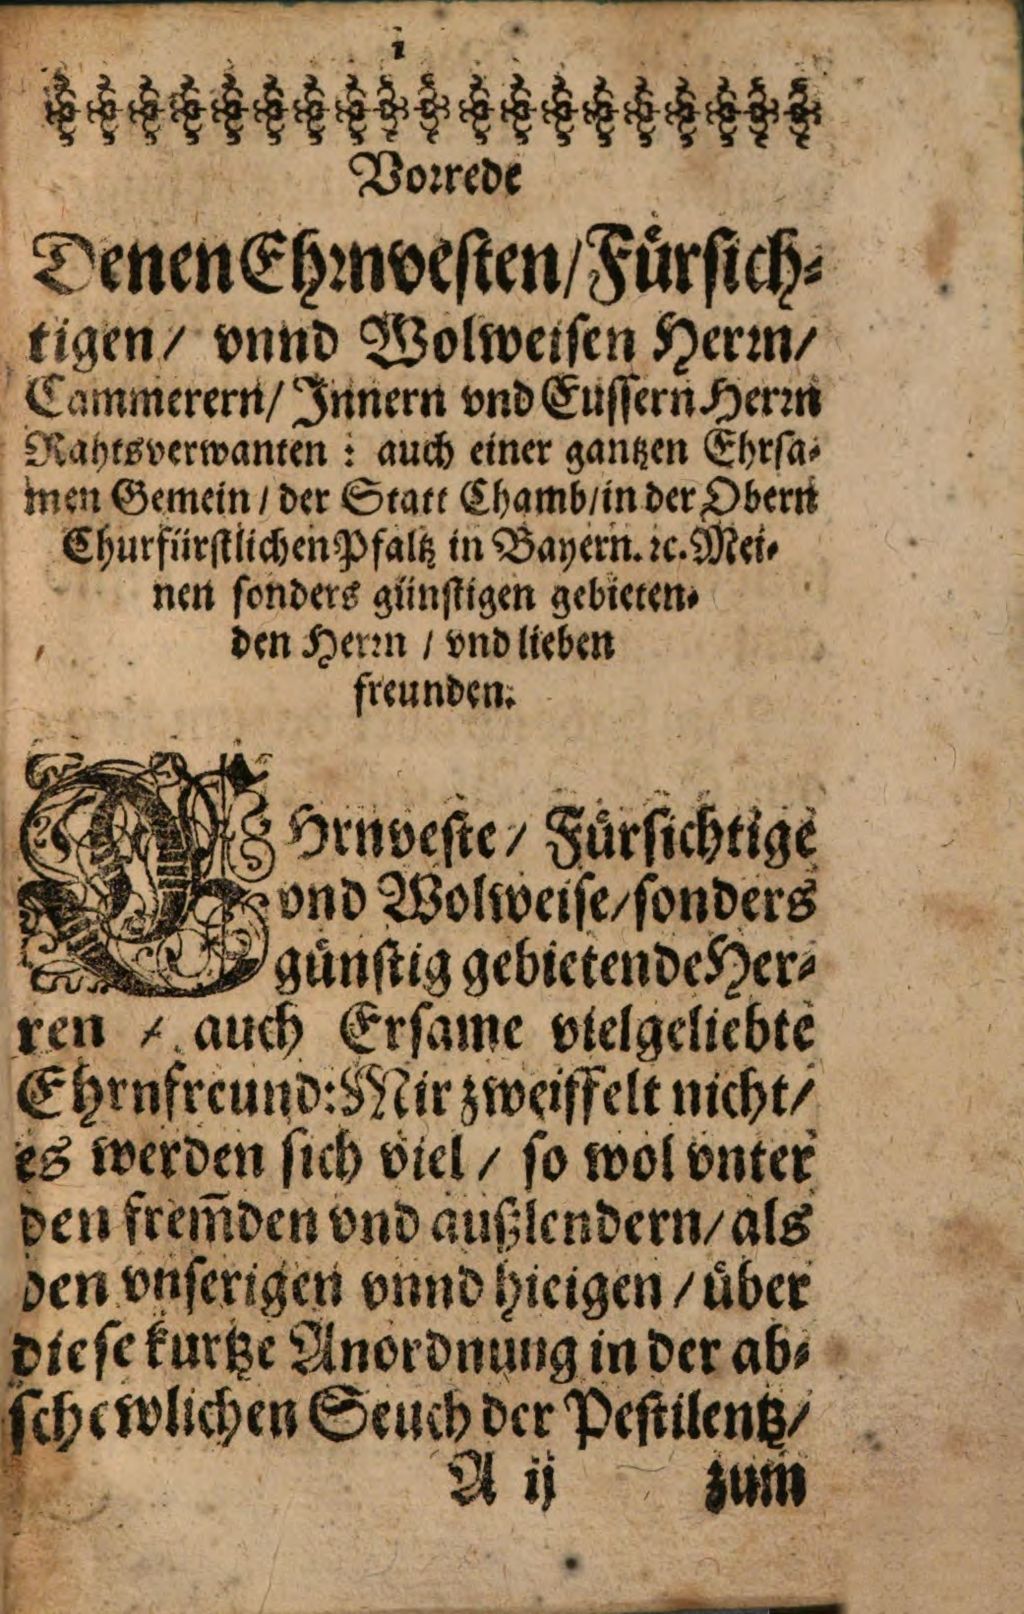 1
Vorrede
Denen Ehrnvesten/Fürsich-
tigen/ vnnd Wolweisen Herrn/
Cammerern/ Innern vnd Eussern Herrn
Rahtsverwanten : auch einer gantzen Ehrsa-
men Gemein / der Statt Chamb/in der Obern
Churfürstlichen Pfaltz in Bayern. ꝛc. Mei-
nen sonders günstigen gebieten-
den Herrn / vnd lieben
freunden.
EHrnveste / Fürsichtige
vnd Wolweise/sonders
günstig gebietende Her-
ren / auch Ersame vielgeliebte
Ehrnfreund: Mir zweiffelt nicht/
es werden sich viel / so wol vnter
den frem̃den vnd außlendern/als
den vnserigen vnnd hieigen /über
diese kurtze Anordnung in der ab-
schewlichen Seuch der Pestilentz/
A ij zum